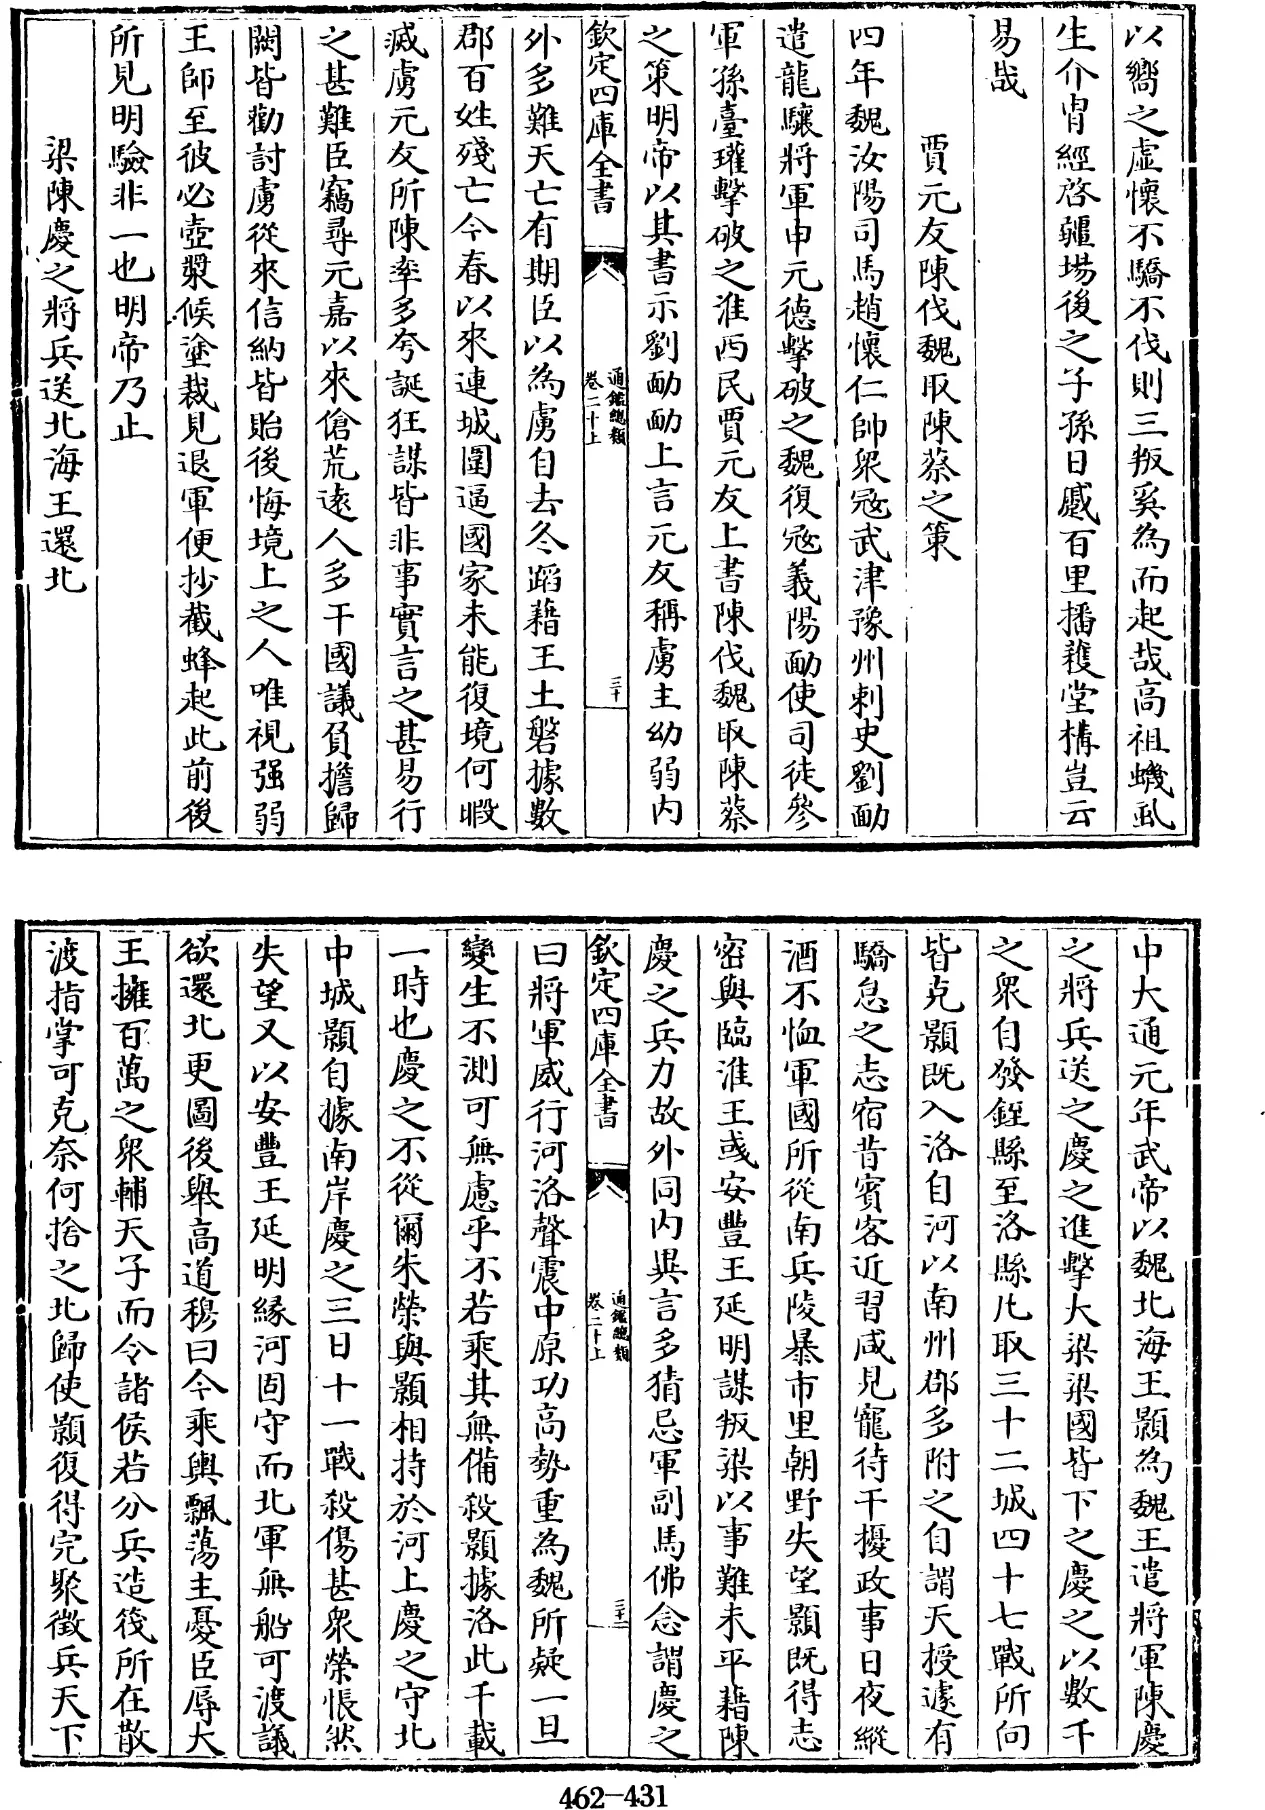 以嚮之虛懷不驕不伐則三叛奚為而起哉高祖蟣虱
生介冑經啓疆場後之子孫日蹙百里播穫堂構豈云
易哉
賈元友陳伐魏取陳蔡之策
四年魏汝陽司馬趙懷仁帥衆冦武津豫州刺史劉勔
遣龍驤將軍申元德擊破之魏復冦義陽勔使司徒參
軍孫臺瓘擊破之淮西民賈元友上書陳伐魏取陳蔡
之策明帝以其書示劉勔勔上言元友稱虜主幼弱内
欽定四庫全書
通鑑總類
卷二十上
三十
外多難天亡有期臣以為虜自去冬蹈藉王土磐據數
郡百姓殘亡今春以來連城圍逼國家未能復境何暇
滅虜元友所陳率多夸誕狂謀皆非事實言之甚易行
之甚難臣竊尋元嘉以來傖荒逺人多干國議負擔歸
闕皆勸討虜從來信納皆貽後悔境上之人唯視强弱
王師至彼必壺漿候塗裁見退軍便抄截蜂起此前後
所見明驗非一也明帝乃止
梁陳慶之將兵送北海王還北
中大通元年武帝以魏北海王顥為魏王遣將軍陳慶
之將兵送之慶之進擊大梁梁國皆下之慶之以數千
之衆自發銍縣至洛縣凡取三十二城四十七戰所向
皆克顥既入洛自河以南州郡多附之自謂天授遽有
驕怠之志宿昔賓客近習咸見寵待干擾政事日夜縱
酒不恤軍國所從南兵陵暴市里朝野失望顥既得志
密與臨淮王彧安豐王延明謀叛梁以事難未平藉陳
慶之兵力故外同内異言多猜忌軍副馬佛念謂慶之
欽定四庫全書
通鑑總類
卷二十上
三十一
曰將軍威行河洛聲震中原功高勢重為魏所疑一旦
變生不測可無慮乎不若乘其無備殺顥據洛此千載
一時也慶之不從爾朱榮與顥相持於河上慶之守北
中城顥自據南岸慶之三日十一戰殺傷甚衆榮悵然
失望又以安豐王延明緣河固守而北軍無船可渡議
欲還北更圖後舉高道穆曰今乘輿飄蕩主憂臣辱大
王擁百萬之衆輔天子而令諸侯若分兵造筏所在散
渡指掌可克奈何捨之北歸使顥復得完聚徵兵天下
462-431